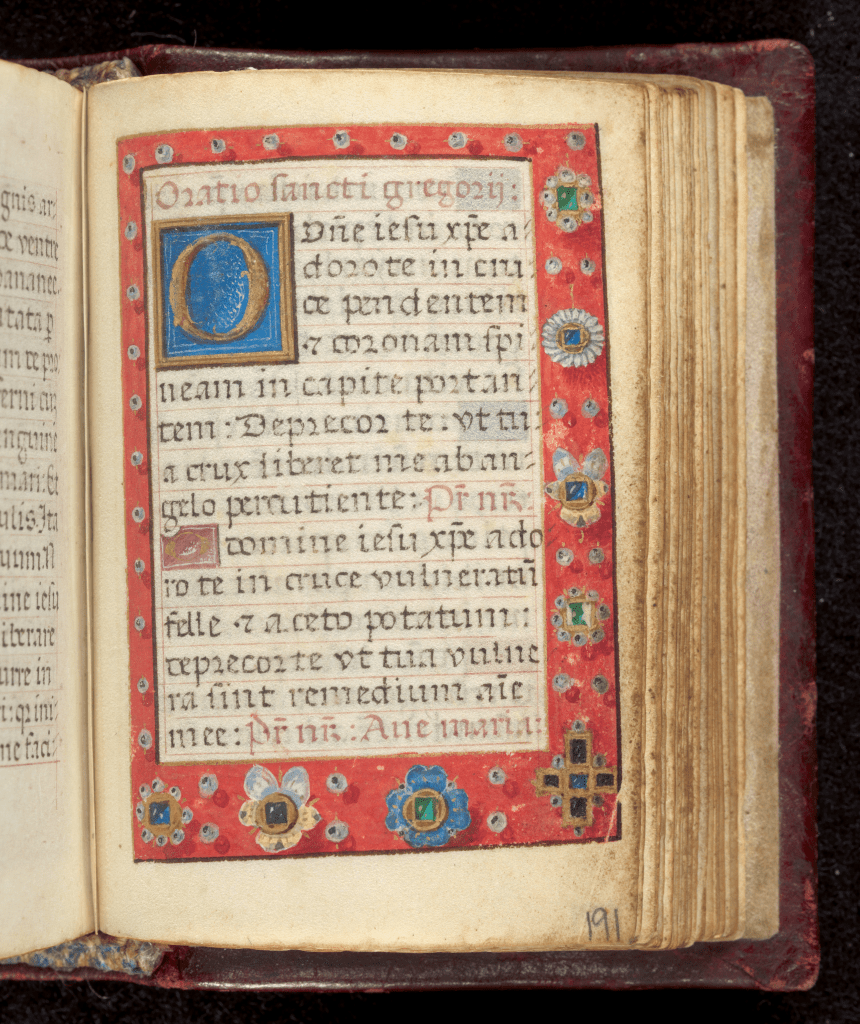 gnis ar/
ce ventre
tata ꝑ
m te pro
erni cu
nguine
mari: Et
ulis. Ita
uum. N
ine iesu
iberare
urre in
me faci/
Oratio sancti gregorij:
O Dñe iesu xp̄e a/
doro te in cru/
ce pendentem
⁊ coronam spi/
neam in capite portan/
tem: Deprecor te: vt tu/
a crux liberet me ab an/
gelo percutiente: Pr̄ nr̄:
O domine iesu xp̄e ado
ro te in cruce vulneratū
felle ⁊ aceto potatum:
deprecor te vt tua vulne
ra sint remedium aīe
mee: Pr̄ nr̄: Aue maria:
191